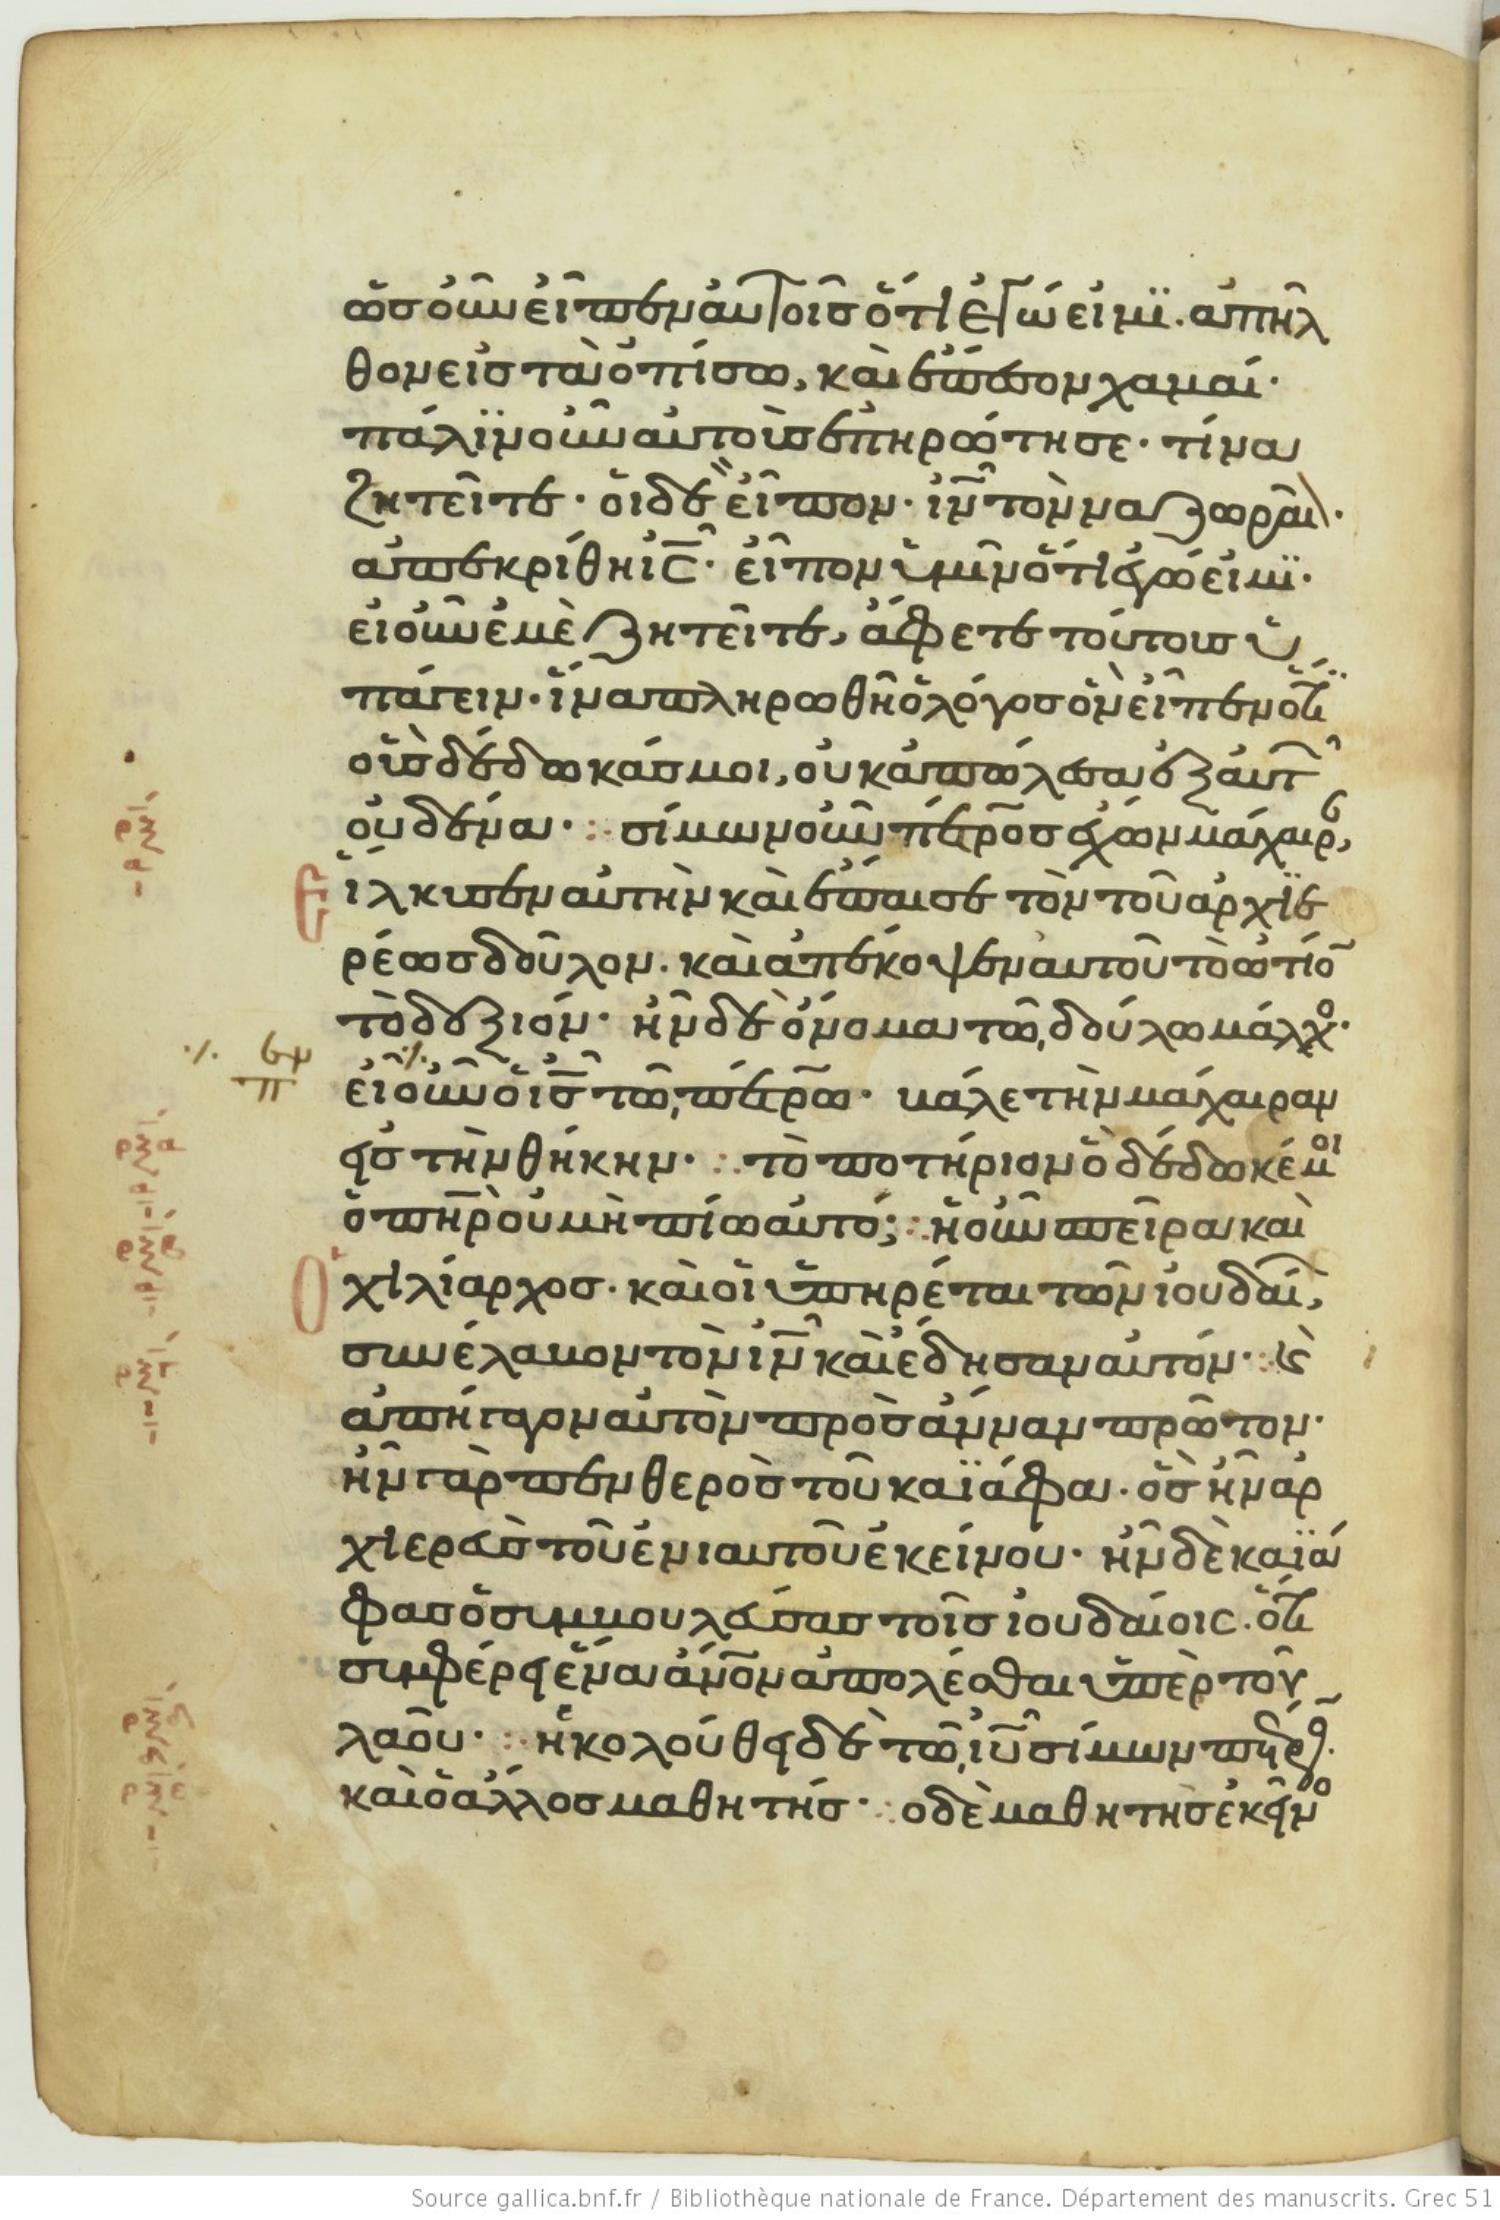 ὡσ οὖν εἶπεν αὐτοῖσ ὅτι ἐγώ εἰμϊ. ἀπῆλ
θον εἰσ τὰ ὀπίσω, καὶ ἔπεσον χαμαί·
πάλϊν οὖν αὐτοὺσ ἐπηρώτησε· τίνα
ζητεῖτε· οἱ δὲ εἶπον· ἰν̅ τὸν ναζωραῖ·
ἀπεκρίθη ἰς̅· εἶπον ὑμῖν ὅτι ἐγώ εἰμϊ·
εἰ οὖν ἐμὲ ζητεῖτε, ἄφετε τούτουσ ὑ
πάγειν· ἵνα πληρωθῆ ὁ λόγοσ ὃν εἶπεν ὅτι
οὓσ δέδωκάσ μοι, οὐκ ἀπώλεσα ἐξ αὐτ
οὐδένα· σίμων οὖν πέτροσ ἔχων μάχαιρ,
εἵλκυσεν αὐτὴν καὶ ἔπαισε τὸν τοῦ ἀρχϊε
ρέωσ δοῦλον. καὶ ἀπέκοψεν αὐτοῦ τὸ ὠτίο
τὸ δεξιόν· ἦν δὲ ὄνομα τῶ δούλω μάλχο·
·/. εν
π
εἶ οὖν ὁ ἰς̅ τῶ πέτρω· βάλε τὴν μάχαιραν
εἰσ τὴν θήκην· τὸ ποτήριον ὃ δέδωκέ μοι
ὁ πηρ̅ οὐ μὴ πίω αὐτό; ἡ οὖν σπεῖρα καὶ
ὁ χιλίαρχοσ· καὶ οἱ ὑπηρέται τῶν ἰουδαί,
συνέλαβον τὸν ἰν̅ καὶ ἔδησαν αὐτόν· καὶ
ἀπήγαγον αὐτὸν πρὸσ ἄνναν πρῶτον·
ἦν γὰρ πενθερὸσ τοῦ καϊάφα· ὃσ ἦν ἀρ
χιερεὺσ τοῦ ἐνιαυτοῦ ἐκείνου· ἦν δὲ καϊά
φασ ὁ συμβουλεύσασ τοῖσ ἰουδαίοισ· ὅτι
συμφέρει ἕνα ἄνο̅ν ἀπολέσθαι ὑπὲρ τοῦ
λαοῦ· ἠκολούθει δὲ τῶ ἰυ̅ σίμων πέτρ·
καὶ ὁ ἄλλοσ μαθητήσ· ὁ δὲ μαθητὴσ ἐκεῖνο
Source gallica.bnf.fr / Bibliothèque nationale de France. Département des manuscrits. Grec 51